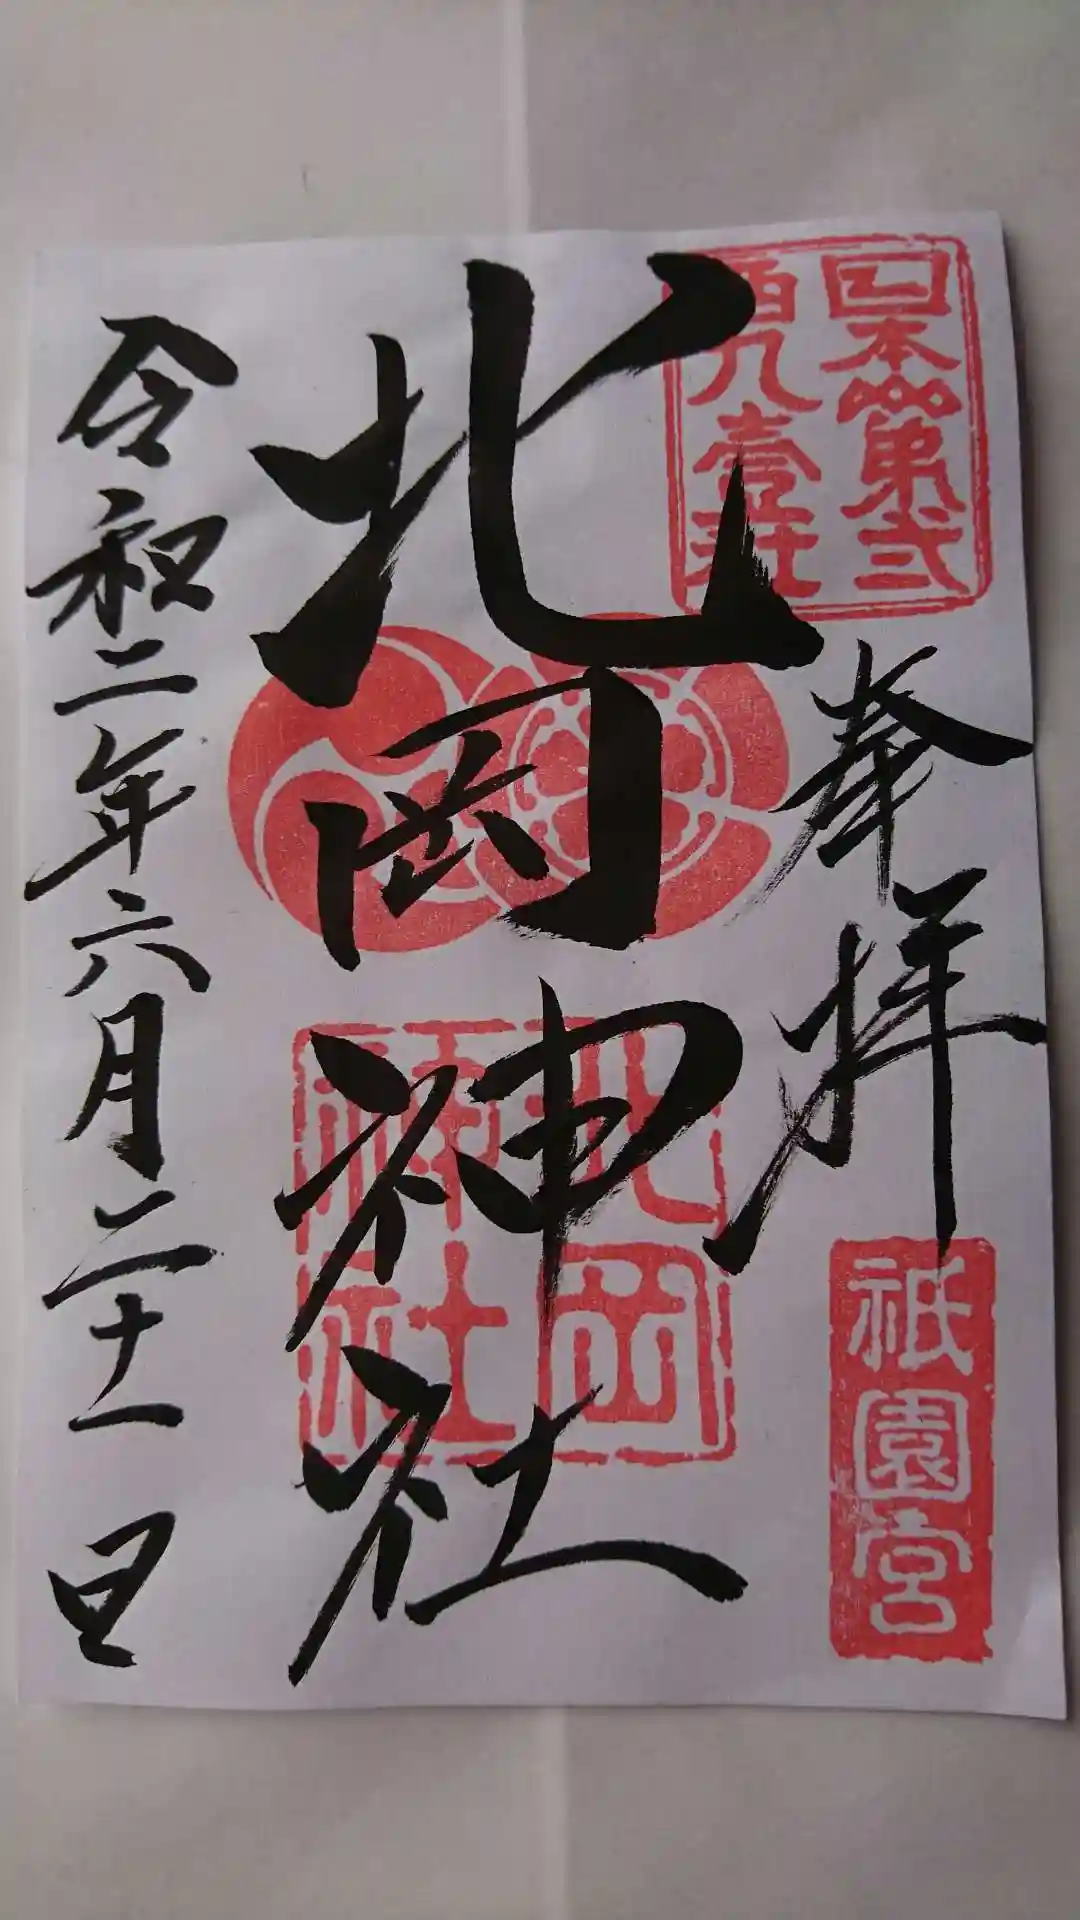 日本第弐
百九壹社
奉拝
祇園宮
北岡神社
北岡
神社
令和二年六月二十一日